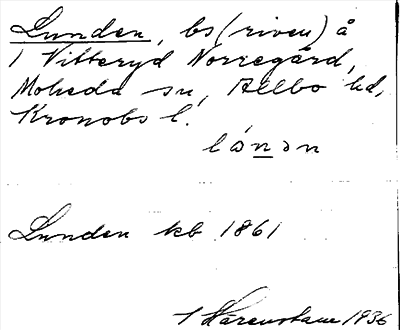 Lunden, bs (riven) å
1 Vitteryd Norregård,
Moheda sn, Allbo hd,
Kronobs l.
lónən
Lunden kb 1861
1936